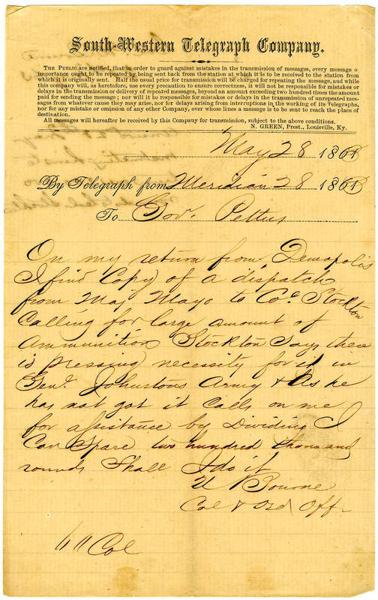 South-Western Telegraph Company.
THE PUBLIC are notified, that in order to guard against mistakes in the transmission of messages, every message of
importance ought to be repeated by being sent back from the station at which it is to be received to the station from
which it is originally sent. Half the usual price for transmission will be charged for repeating the message, and while
this company will, as heretofore, use every precaution to ensure correctness, it will not be responsible for mistakes
or delays in the transmission or delivery of repeated messages, beyond an amount exceeding two hundred times the amount
paid for sending the message; nor will it be responsible for mistakes or delays in the transmission of unrepeated messages
from whatever cause they may arise, nor for delays arising from interruptions in the working of its Telegraphs,
nor for any mistake or omission of any other Company, over whose lines a message is to be sent to reach the place of
destination.
All messages will hereafter be received by this Company for transmission, subject to the above conditions.
N. GREEN, Prest., Louisville, Ky.
May 28 1863
By Telegraph from Meridian 28 1863
To Gov. Pettus
On my return from Demopolis
I find Copy of a dispatch
from Maj Mayo to Col Stockton
Calling for large amount of
ammunition Stockton says there
is pressing necessity for it in
Genl Johnstons Army & As he
has not got it Calls on me
for assistance by Dividing I
Can Spare two hundred thousand
rounds Shall I do it
Col & Ord Offr
Col